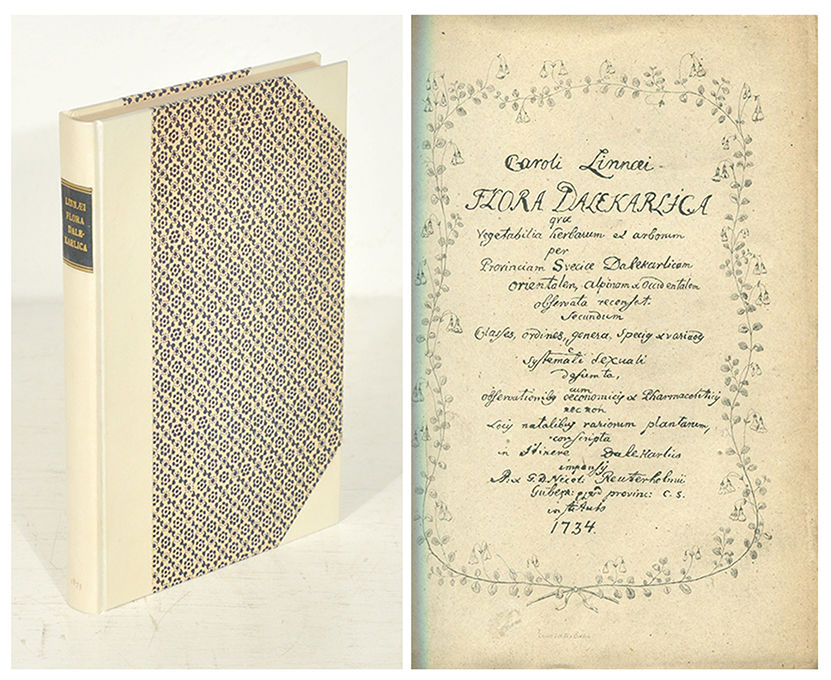 LINNÆI
FLORA
DALE-
KARLICA
Caroli Linnæi
FLORA DALEKARLICA
qvæ
Vegetabilia herbarum et arborum
per
Provinciam Sveciæ Dalekarlicam
orientalem, alpinam & occidentalem
observata recenset
secundum
Classes, ordines, genera,
systemati sexuali
desumta,
cum
oeconomicis & Pharmaceuticis
nec non
Locis natalibus rariorum plantarum,
conscripta
in Itinere Dalekarlico
impensis
G. D. Nicolai Reuterholmii
provinc: C. S.
1734.